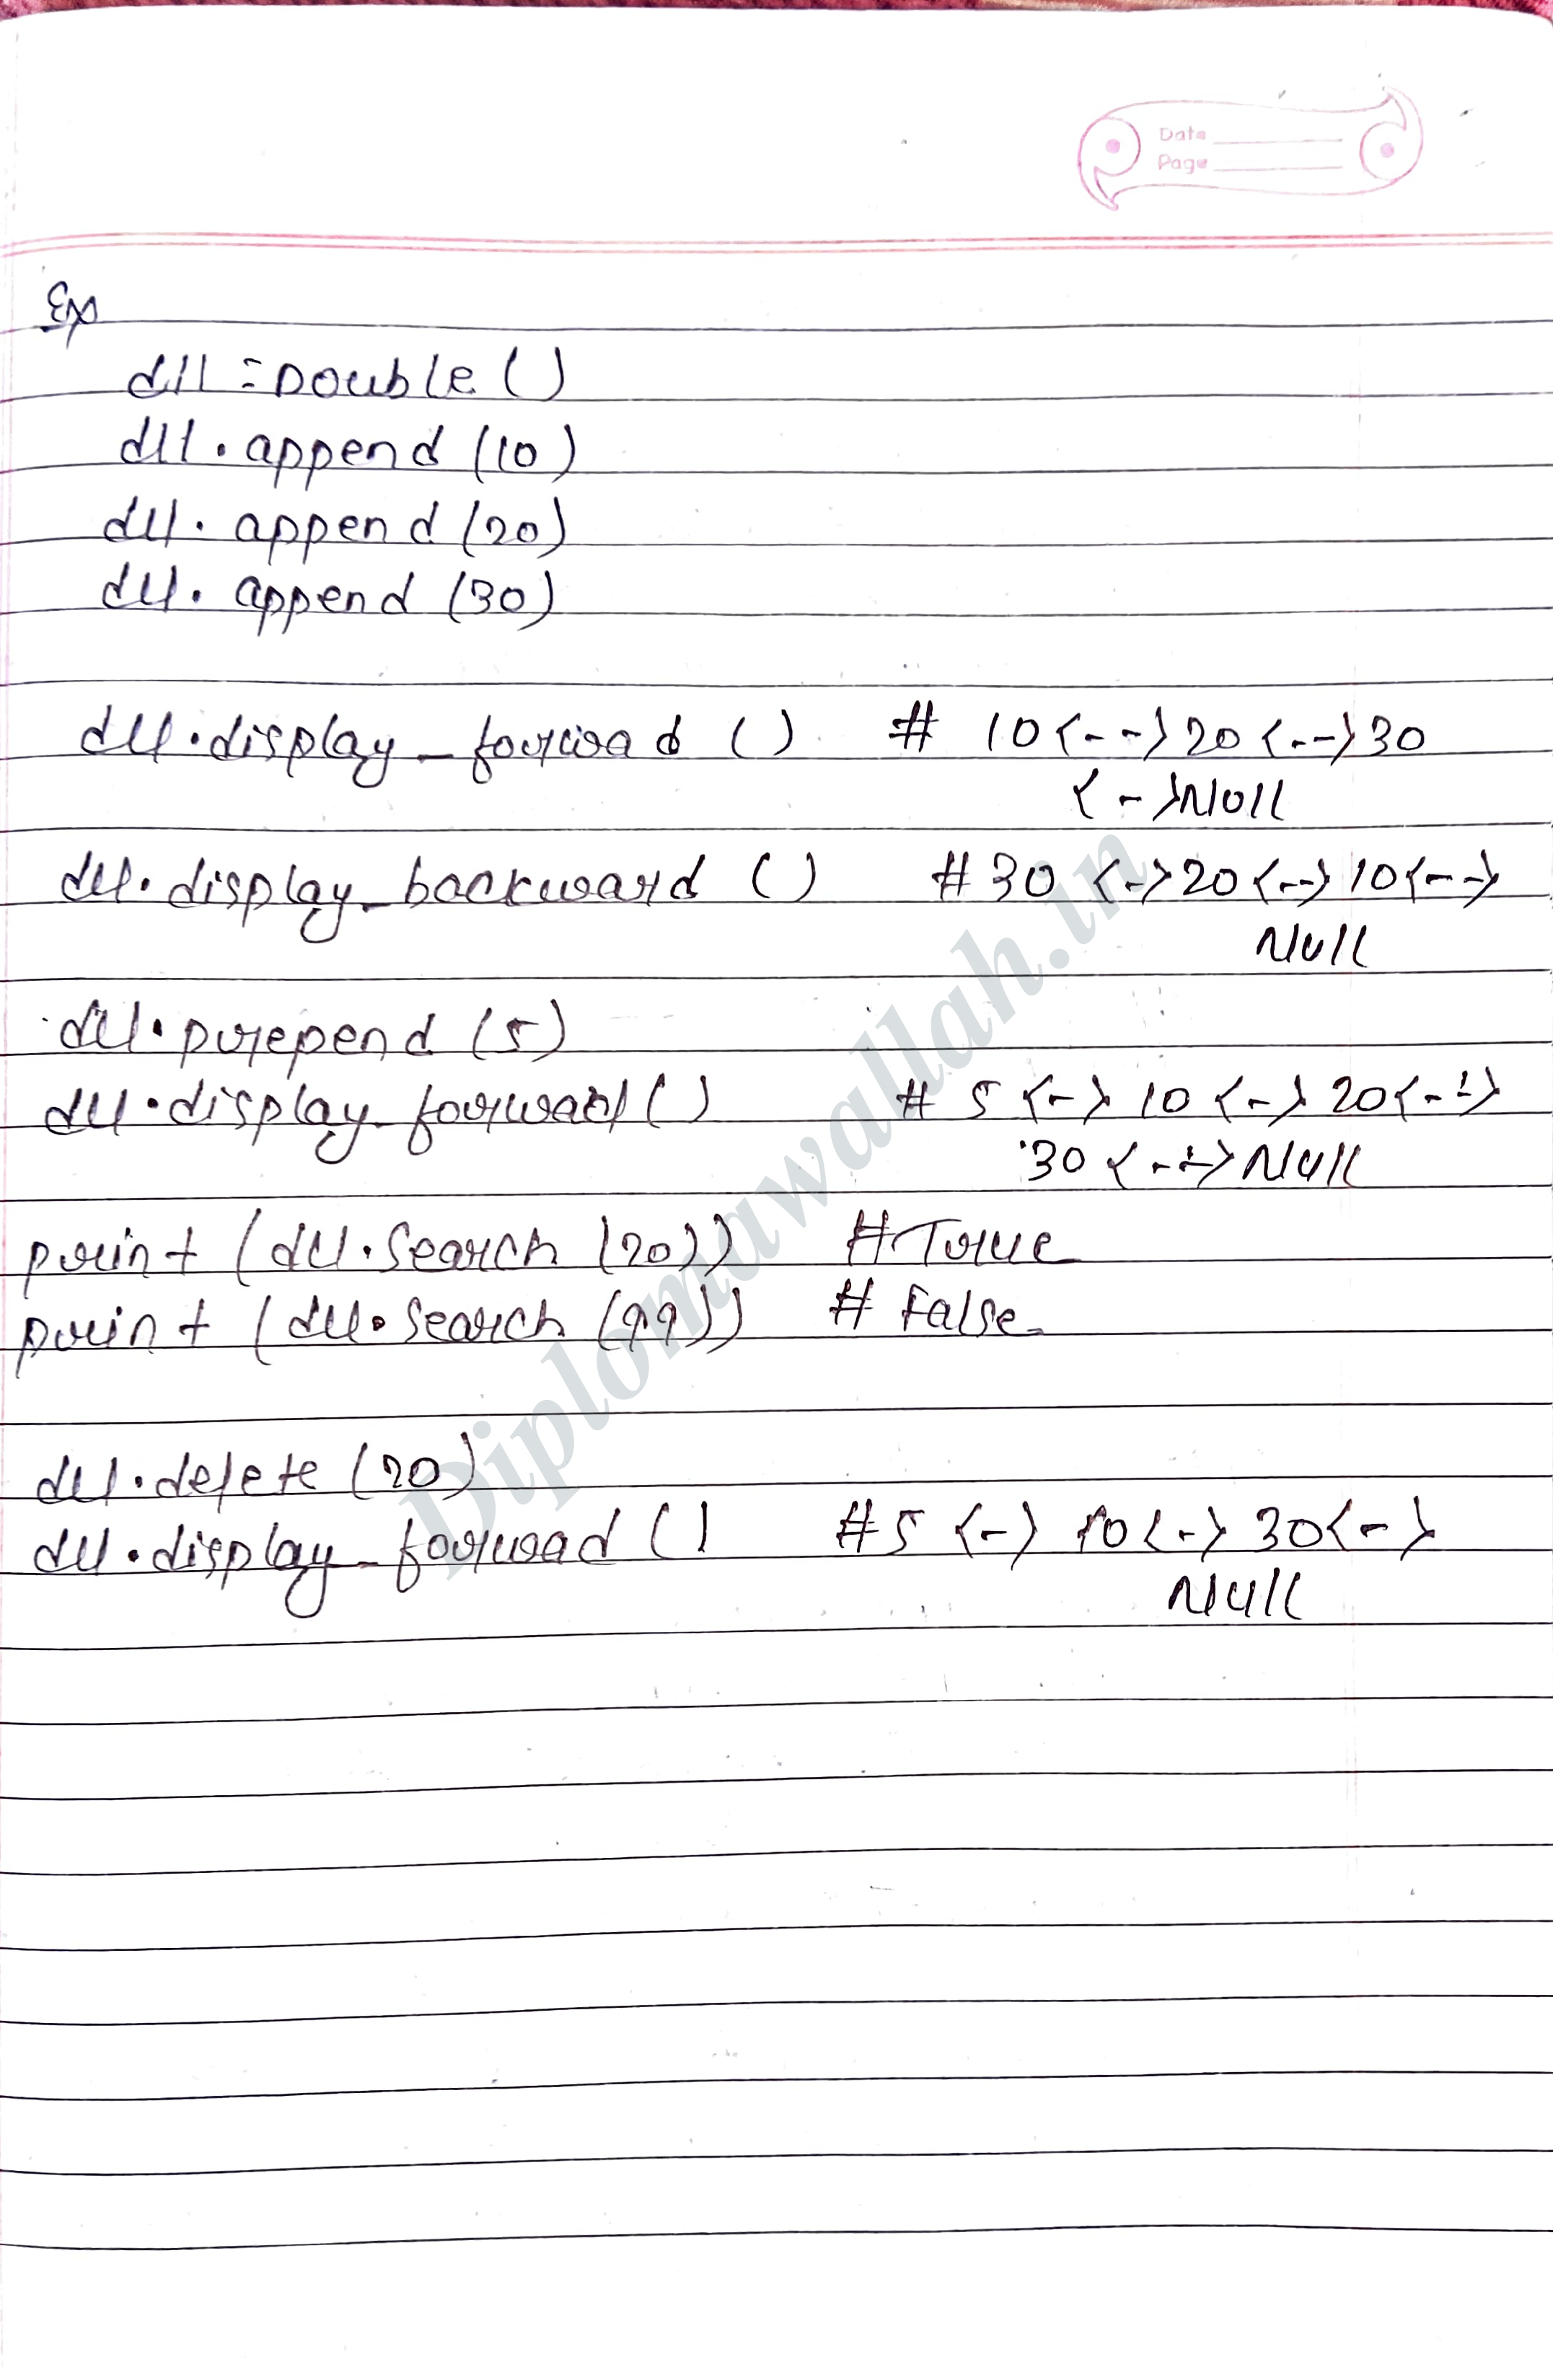 Date
Page
Ex
dll = Double ()
dll . append (10)
dll . append (20)
dll . append (30)
dll . display _ forwad () # 10 <--> 20 <--> 30
<-> Null
dll . display _ backward () # 30 <-> 20 <--> 10 <-->
Null
dll . prepend (5)
dll . display _ forward () # 5 <-> 10 <-> 20 <-->
30 <--> Null
print (dll . Search (20)) # True
print (dll . Search (99)) # False
dll . delete (20)
dll . display _ forwad () # 5 <-> 10 <-> 30 <->
Null
Diplomawallah.in